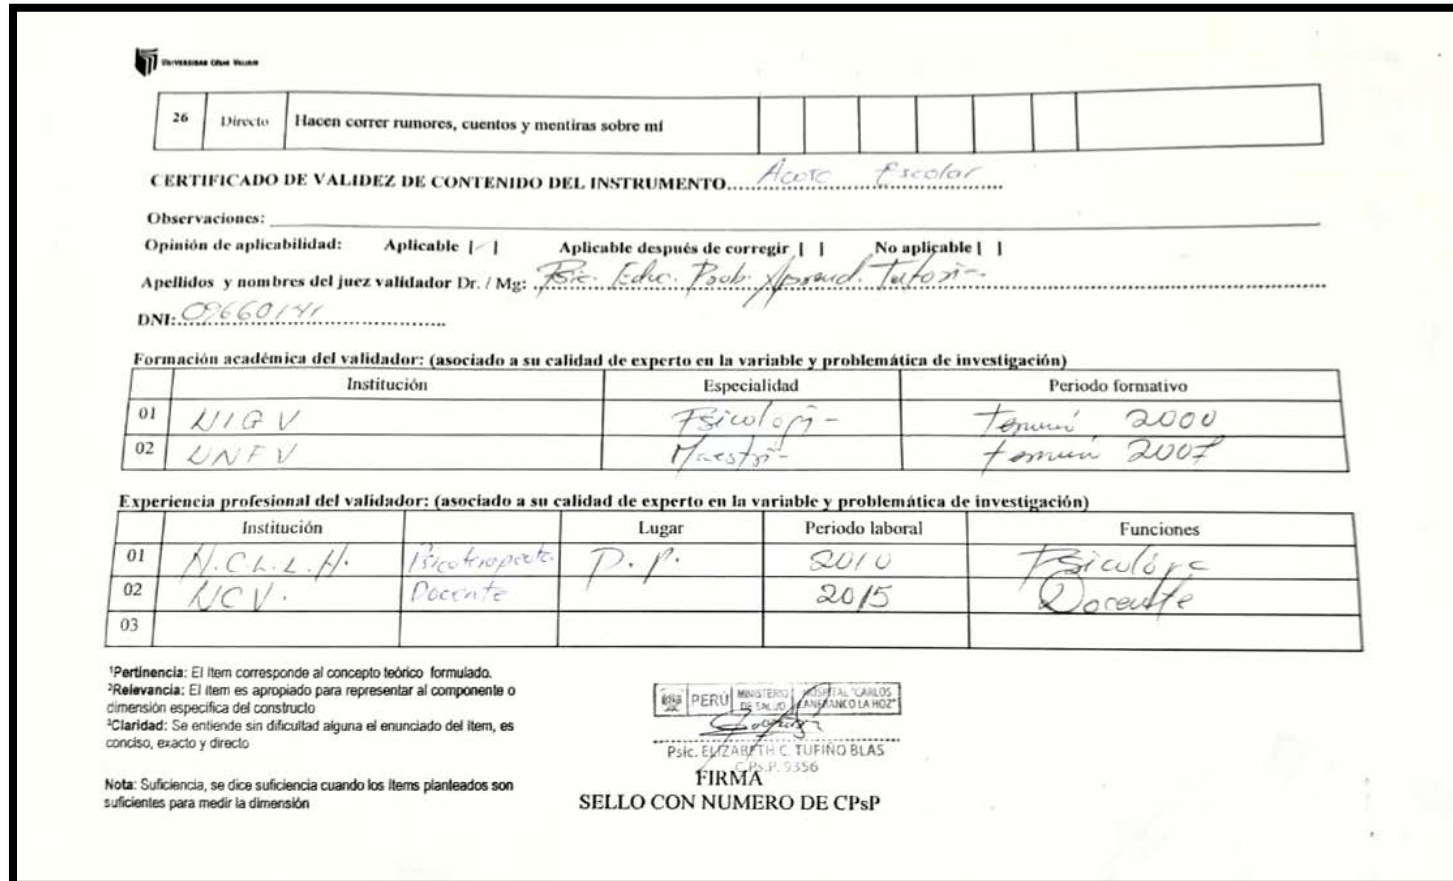 UNIVERSIDAD CÉSAR VALLEJO
26 Directo Hacen correr rumores, cuentos y mentiras sobre mí
CERTIFICADO DE VALIDEZ DE CONTENIDO DEL INSTRUMENTO..... Acoso Escolar
Observaciones:
Opinión de aplicabilidad: Aplicable [✓] Aplicable después de corregir [ ] No aplicable [ ]
Apellidos y nombres del juez validador Dr. / Mg: Psic. Educ. Prob. Aprend. Tutori-
DNI: 09660141
Formación académica del validador: (asociado a su calidad de experto en la variable y problemática de investigación)
Institución Especialidad Periodo formativo
01 UIGV Psicologi- 2000
02 UNFV Maestri- 2007
Experiencia profesional del validador: (asociado a su calidad de experto en la variable y problemática de investigación)
Institución Lugar Periodo laboral Funciones
01 H.C.L.L.H. Psicoterapeuta P.P. 2010
02 UCV. Docente 2015 Docente
03
¹Pertinencia: El ítem corresponde al concepto teórico formulado.
²Relevancia: El ítem es apropiado para representar al componente o
dimensión específica del constructo
³Claridad: Se entiende sin dificultad alguna el enunciado del ítem, es
conciso, exacto y directo
Nota: Suficiencia, se dice suficiencia cuando los ítems planteados son
suficientes para medir la dimensión
PERÚ MINISTERIO DE SALUD HOSPITAL "CARLOS LANFRANCO LA HOZ"
Psic. ELIZABETH C. TUFIÑO BLAS
C.Ps.P. 9356
FIRMA
SELLO CON NUMERO DE CPsP